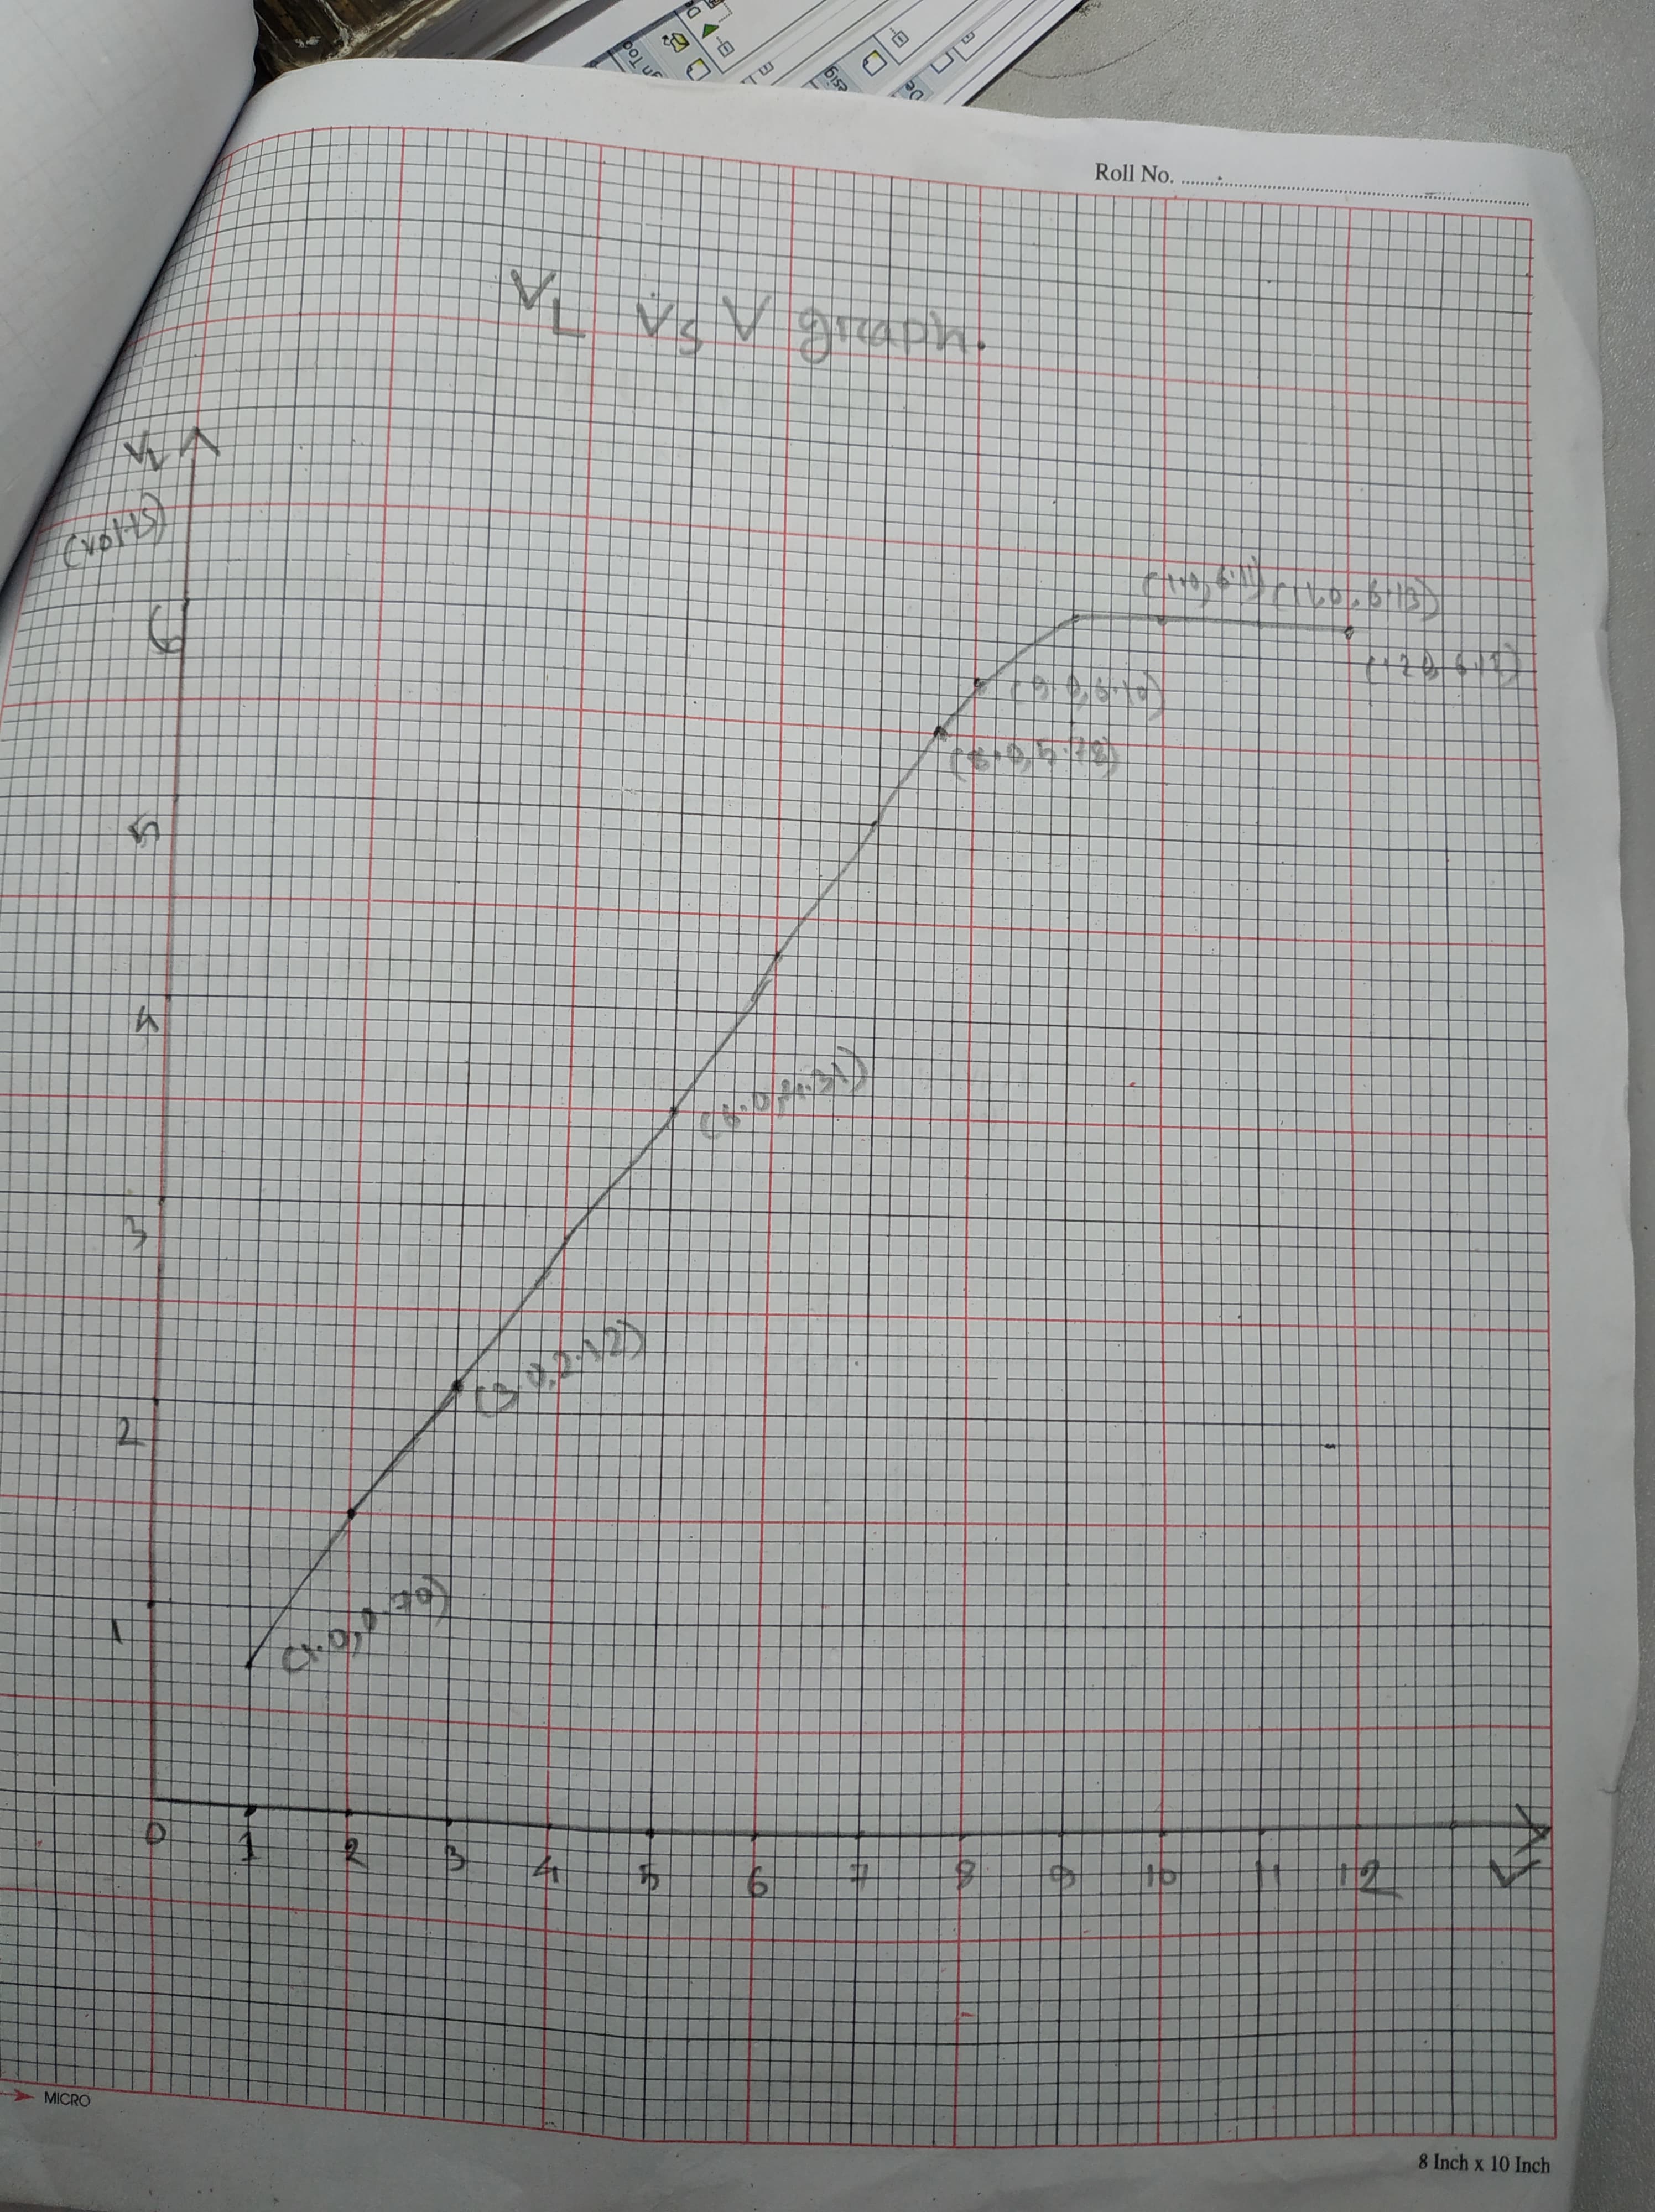 Roll No.
VL vs V graph.
VL
(volts)
6
5
4
3
2
1
(11.0, 6.13)
(9.0, 6.10)
(8.0, 5.78)
(6.0, 4.31)
(3.0, 2.12)
(1.0, 0.70)
0 1 2 3 4 5 6 7 8 9 10 11 12 V
MICRO
8 Inch x 10 Inch